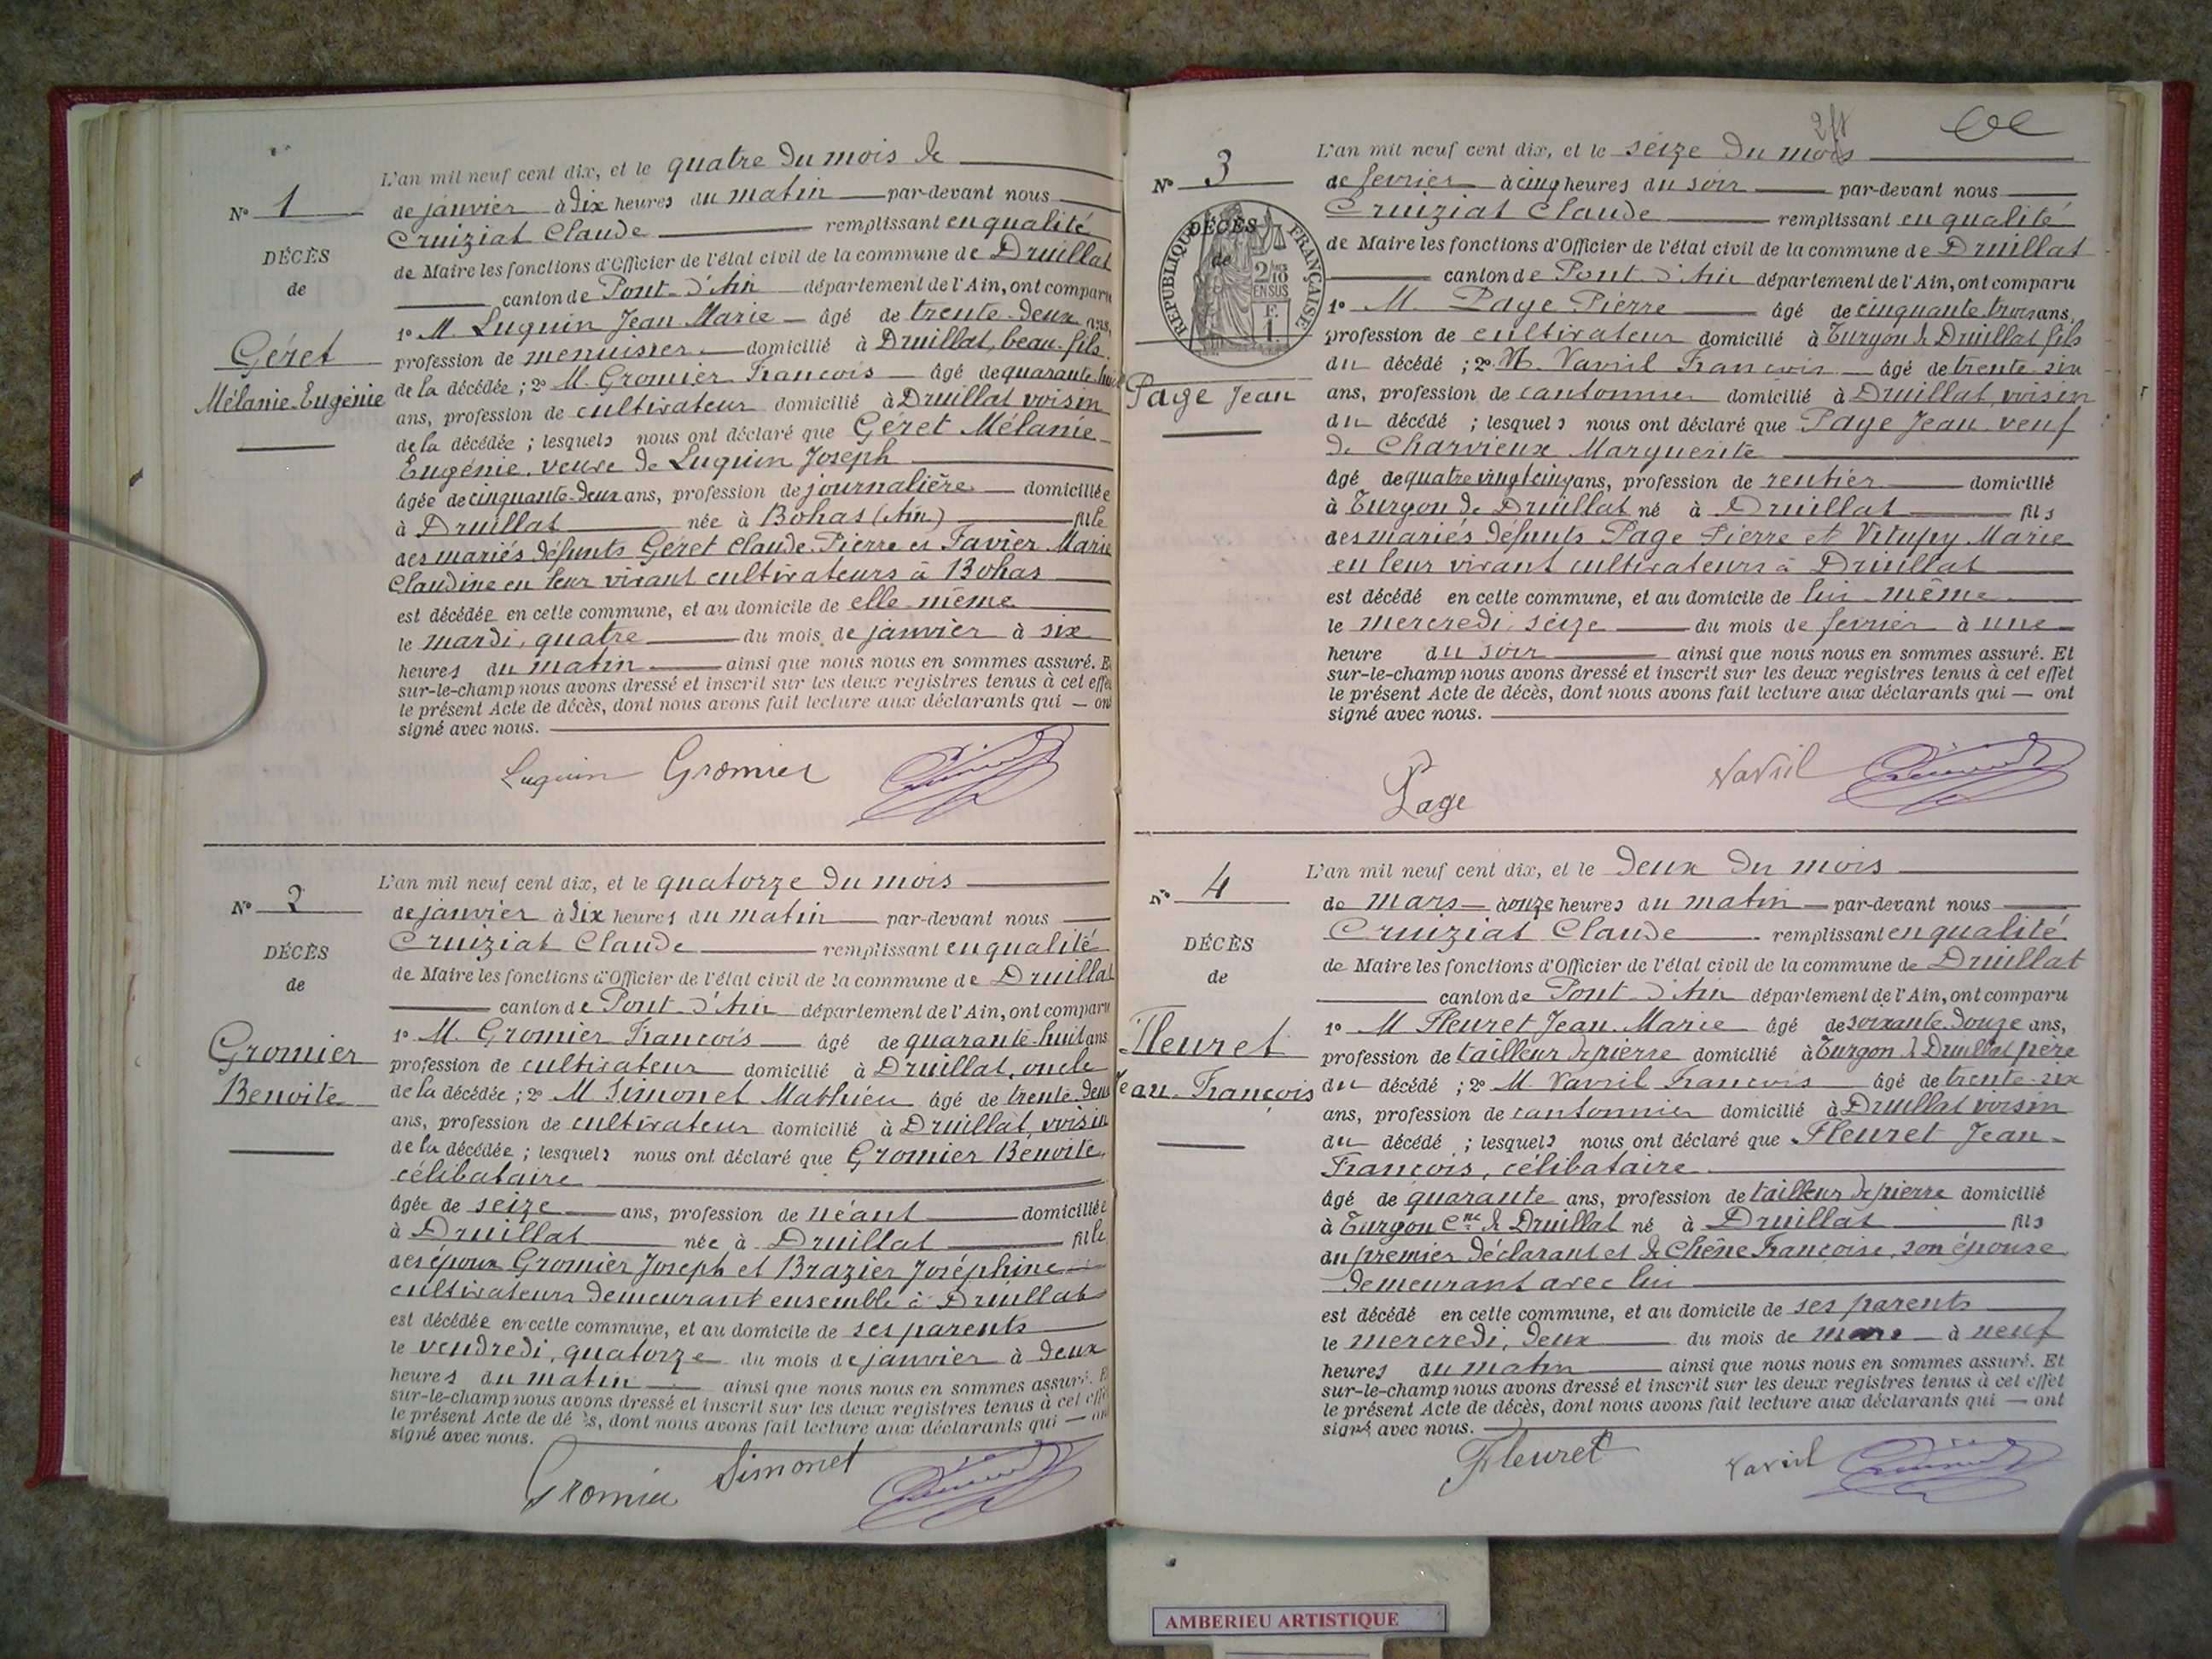 N° 1
DÉCÈS
de
Géret
Mélanie-Eugénie
L'an mil neuf cent dix, et le quatre du mois de
de janvier à dix heures du matin par-devant nous
Cruiziat Claude remplissant en qualité
de Maire les fonctions d'Officier de l'état civil de la commune de Druillat
canton de Pont-d'Ain département de l'Ain, ont comparu
1° M. Luquin Jean-Marie âgé de trente-deux ans,
profession de menuisier domicilié à Druillat, beau-fils
de la décédée ; 2° M. Gromier François âgé de quarante-huit
ans, profession de cultivateur domicilié à Druillat voisin
de la décédée ; lesquels nous ont déclaré que Géret Mélanie
Eugénie, veuve de Luquin Joseph
âgée de cinquante-deux ans, profession de journalière domiciliée
à Druillat née à Bohas (Ain) fille
des mariés défunts Géret Claude-Pierre et Favier Marie
Claudine en leur vivant cultivateurs à Bohas
est décédée en cette commune, et au domicile de elle-même
le mardi, quatre du mois de janvier à six
heures du matin ainsi que nous nous en sommes assuré. E
sur-le-champ nous avons dressé et inscrit sur les deux registres tenus à cet effet
le présent Acte de décès, dont nous avons fait lecture aux déclarants qui — ont
signé avec nous.
Luquin Gromier
N° 2
DÉCÈS
de
Gromier
Benoite
L'an mil neuf cent dix, et le quatorze du mois
de janvier à dix heures du matin par-devant nous
Cruiziat Claude remplissant en qualité
de Maire les fonctions d'Officier de l'état civil de la commune de Druillat
canton de Pont-d'Ain département de l'Ain, ont comparu
1° M. Gromier François âgé de quarante-huit ans
profession de cultivateur domicilié à Druillat, oncle
de la décédée ; 2° M Simonet Mathieu âgé de trente-deux
ans, profession de cultivateur domicilié à Druillat, voisin
de la décédée ; lesquels nous ont déclaré que Gromier Benoite,
célibataire
âgée de seize ans, profession de néant domiciliée
à Druillat née à Druillat fille
des époux Gromier Joseph et Brazier Joséphine
cultivateurs demeurant ensemble à Druillat
est décédée en cette commune, et au domicile de ses parents
le vendredi, quatorze du mois de janvier à deux
heures du matin ainsi que nous nous en sommes assuré. E
sur-le-champ nous avons dressé et inscrit sur les deux registres tenus à cet effet
le présent Acte de décès, dont nous avons fait lecture aux déclarants qui — ont
signé avec nous.
Gromier Simonet
N° 3
DÉCÈS
de
RÉPUBLIQUE FRANÇAISE
2/10
EN SUS
F.
1.
Page Jean
L'an mil neuf cent dix, et le seize du mois
de fevrier à cinq heures du soir par-devant nous
Cruiziat Claude remplissant en qualité
de Maire les fonctions d'Officier de l'état civil de la commune de Druillat
canton de Pont-d'Ain département de l'Ain, ont comparu
1° M. Page Pierre âgé de cinquante-trois ans,
profession de cultivateur domicilié à Turgon de Druillat fils
du décédé ; 2° M. Vavril François âgé de trente-six
ans, profession de cantonnier domicilié à Druillat, voisin
du décédé ; lesquels nous ont déclaré que Page Jean veuf
de Charvieux Marguerite
âgé de quatre vingt cinq ans, profession de rentier domicilié
à Turgon de Druillat né à Druillat fils
des mariés défunts Page Pierre et Vitupy Marie
en leur vivant cultivateurs à Druillat
est décédé en cette commune, et au domicile de lui-même
le mercredi, seize du mois de fevrier à une
heure du soir ainsi que nous nous en sommes assuré. Et
sur-le-champ nous avons dressé et inscrit sur les deux registres tenus à cet effet
le présent Acte de décès, dont nous avons fait lecture aux déclarants qui — ont
signé avec nous.
Page Vavril
N° 4
DÉCÈS
de
Fleuret
Jean-François
L'an mil neuf cent dix, et le deux du mois
de mars à onze heures du matin par-devant nous
Cruiziat Claude remplissant en qualité
de Maire les fonctions d'Officier de l'état civil de la commune de Druillat
canton de Pont-d'Ain département de l'Ain, ont comparu
1° M Fleuret Jean-Marie âgé de soixante-douze ans,
profession de tailleur de pierre domicilié à Turgon de Druillat père
du décédé ; 2° M. Vavril François âgé de trente-six
ans, profession de cantonnier domicilié à Druillat voisin
du décédé ; lesquels nous ont déclaré que Fleuret Jean-
François, célibataire
âgé de quarante ans, profession de tailleur de pierre domicilié
à Turgon Cne de Druillat né à Druillat fils
du premier déclarant et de Chêne Françoise, son épouse
demeurant avec lui
est décédé en cette commune, et au domicile de ses parents
le mercredi, deux du mois de mars à neuf
heures du matin ainsi que nous nous en sommes assuré. Et
sur-le-champ nous avons dressé et inscrit sur les deux registres tenus à cet effet
le présent Acte de décès, dont nous avons fait lecture aux déclarants qui — ont
signé avec nous.
Fleuret Vavril
AMBERIEU ARTISTIQUE